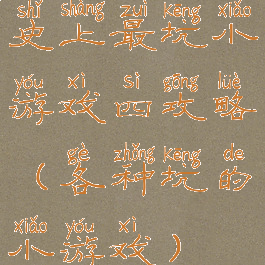 shǐ shàng zuì kēng xiǎo
史上最坑小
yóu xì sì gōng lüè
游戏四攻略
gè zhǒng kēng de
（各种坑的
xiǎo yóu xì
小游戏）